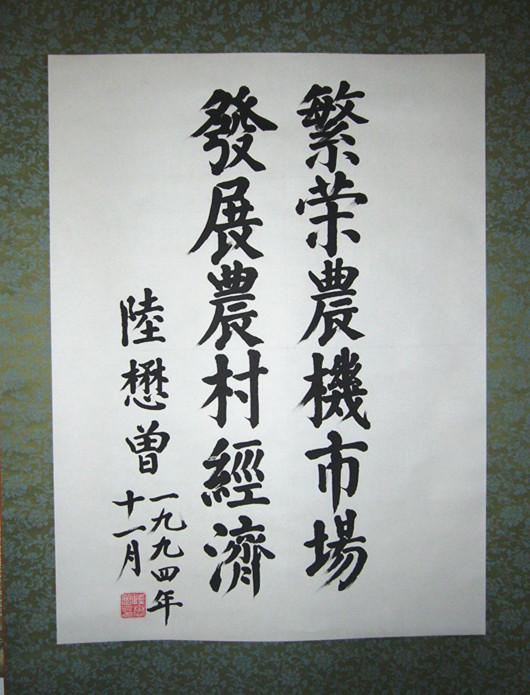 繁荣農機市場
發展農村經濟
陸懋曽
一九九四年
十一月